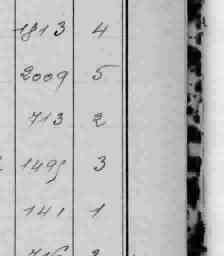 1813 4
2009 5
713 2
1495 3
141 1